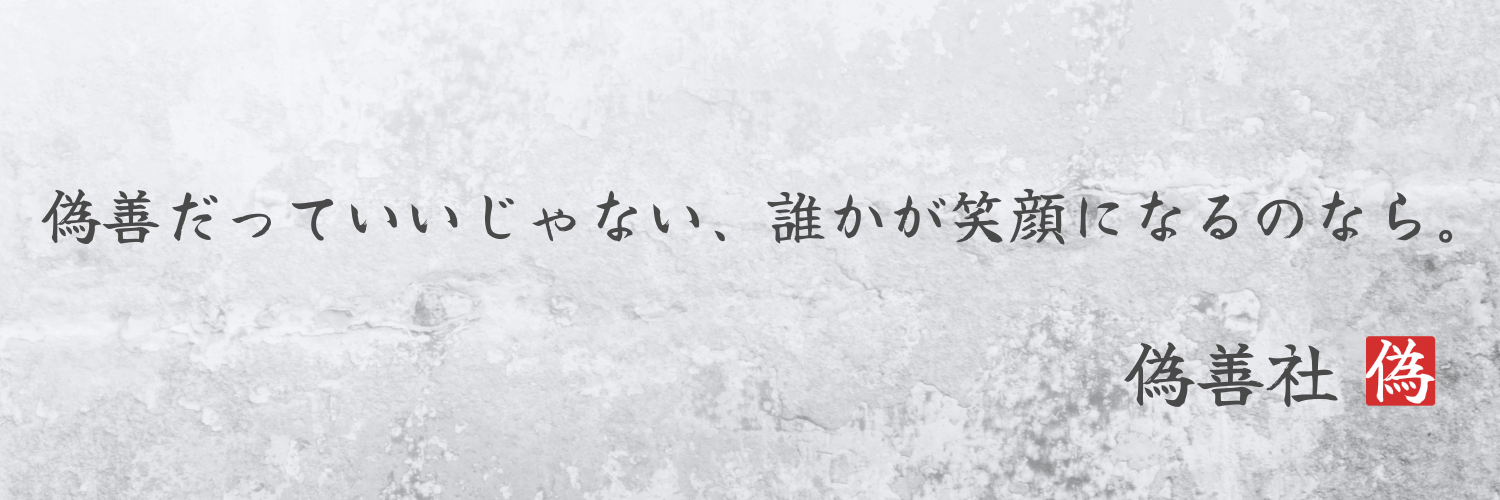 偽善だっていいじゃない、誰かが笑顔になるのなら。
偽善社 偽